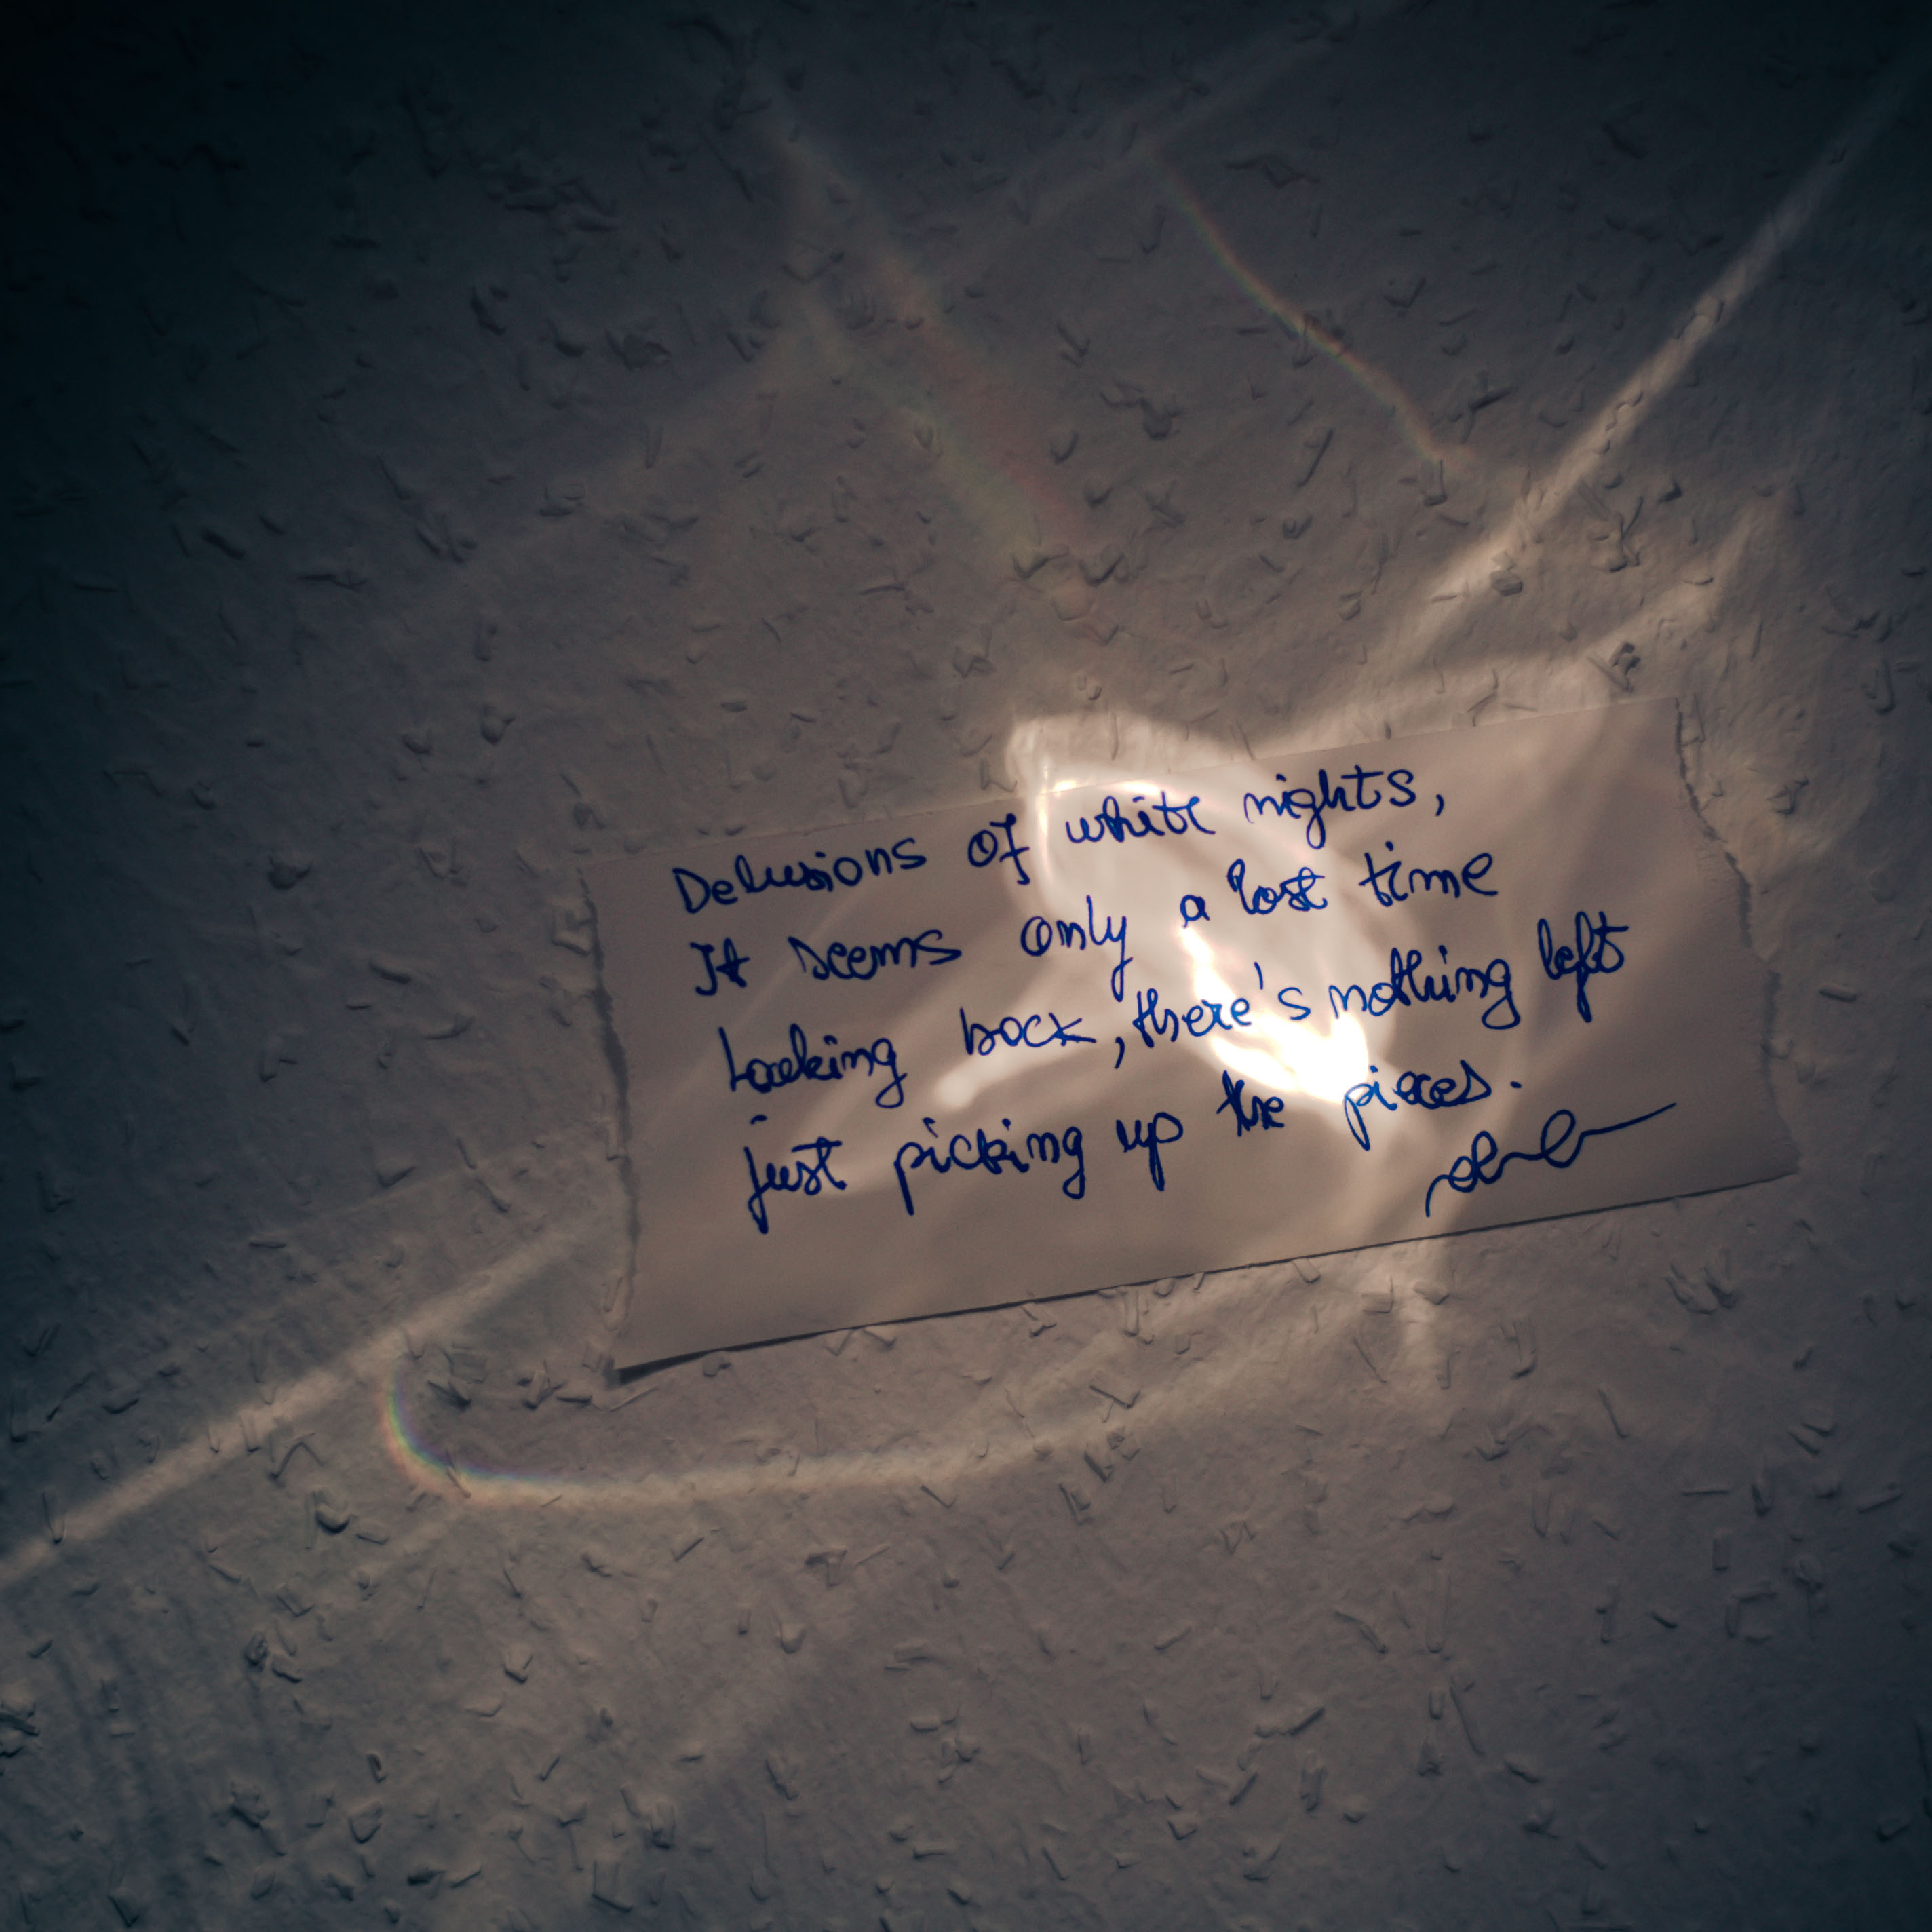 Delusions of white nights,
It seems only a lost time
Looking back, there's nothing left
just picking up the pieces.